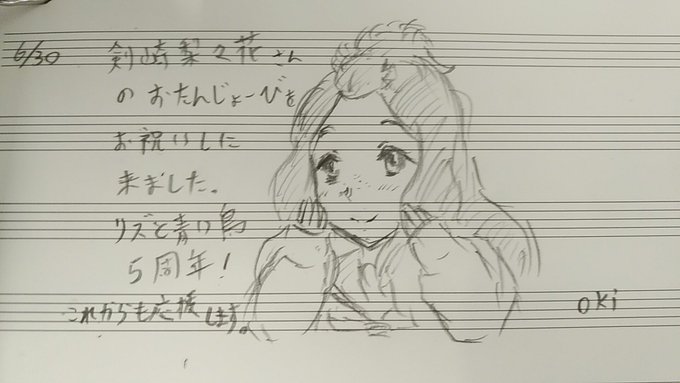 6/30
剣崎梨々花さん
のおたんじょーびを
お祝いしに
来ました。
リズと青い鳥
5周年!
これからも応援します。
oki